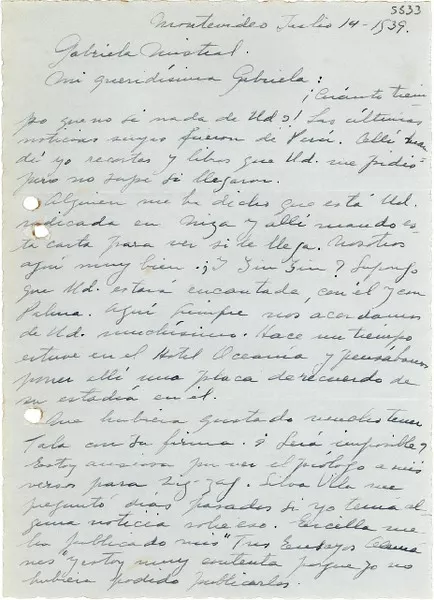 5533
Montevideo Julio 14-1939.
Gabriela Mistral.
Mi queridísima Gabriela:
¡Cuánto tiem-
po que no sé nada de Ud.! Las últimas
noticias suyas fueron de Perú. Allí man-
dé yo recortes y libros que Ud. me pidió
pero no supe si llegaron.
Alguien me ha dicho que está Ud.
radicada en Niza y allí mando es-
ta carta para ver si le llega. Nosotros
aquí muy bien. ¿Y Yin Yin? Supongo
que Ud. estará encantada, con él y con
Palma. Aquí siempre nos acordamos
de Ud. muchísimo. Hace un tiempo
estuve en el Hotel Oceanía y pensábamos
poner allí una placa de recuerdo de
su estadía en él.
Me hubiera gustado tener
Tala con su firma. ¿Será imposible?
Estoy ansiosa por ver el prólogo a mis
versos para Zig-zag. Silva Vila me
preguntó días pasados si yo tenía al-
guna noticia sobre eso. Ercilla me
ha publicado mis "Tres Ensayos
y estoy muy contenta porque yo no
hubiera podido publicarlos.